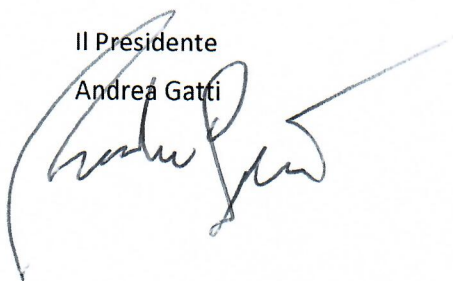 Il Presidente
Andrea Gatti